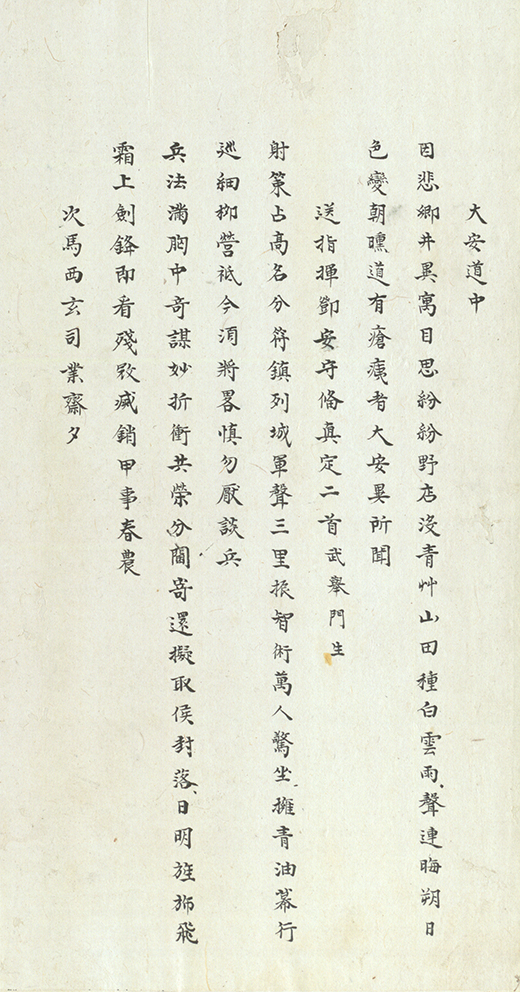 大安道中
因悲鄉井異寓目思紛紛野店沒青艸山田種白雲雨聲連晦朔日
色變朝曛道有瘡痍者大安異所聞
送指揮鄧安守俻真定二首武舉門生
射策占高名分符鎮列城軍聲三里振智術萬人驚坐擁青油幕行
巡細柳營祗今湏將畧慎勿厭談兵
兵法滿胸中奇謀妙折衝共榮分閫寄還擬取侯封落日明旌斾飛
霜上劍鋒即看殘敗滅銷甲事春農
次馬西玄司業齋夕